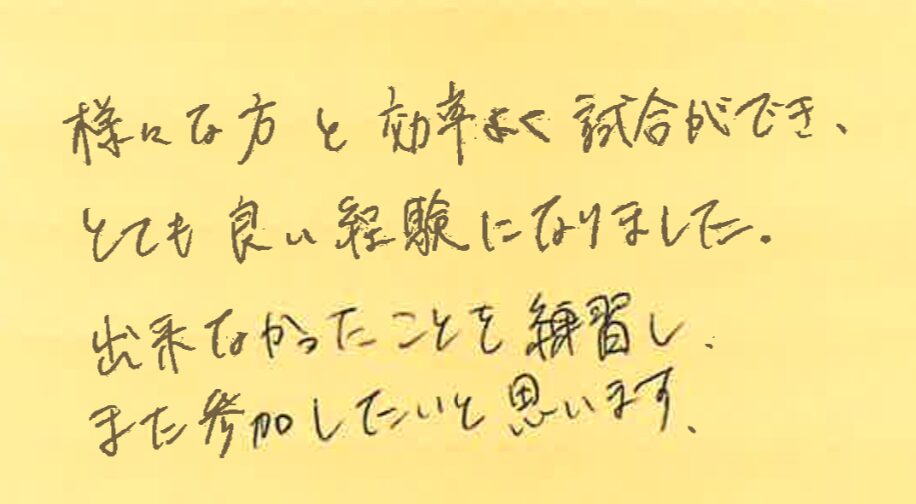 様々な方と効率よく試合ができ、
とても良い経験になりました。
出来なかったことを練習し、
また参加したいと思います。